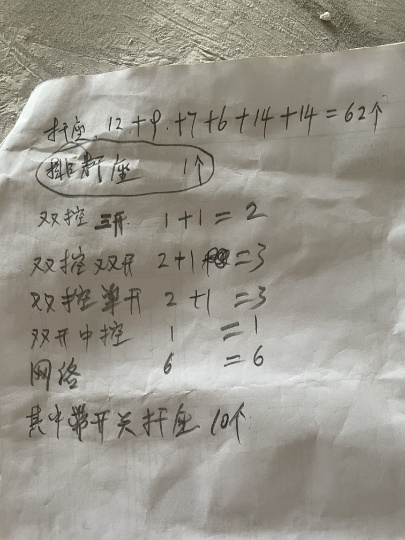 插座 12+9+7+6+14+14=62个
插座 1个
双控三开 1+1=2
双控双开 2+1=3
双控单开 2+1=3
双开中控 1=1
网络 6=6
其中带开关插座 10个